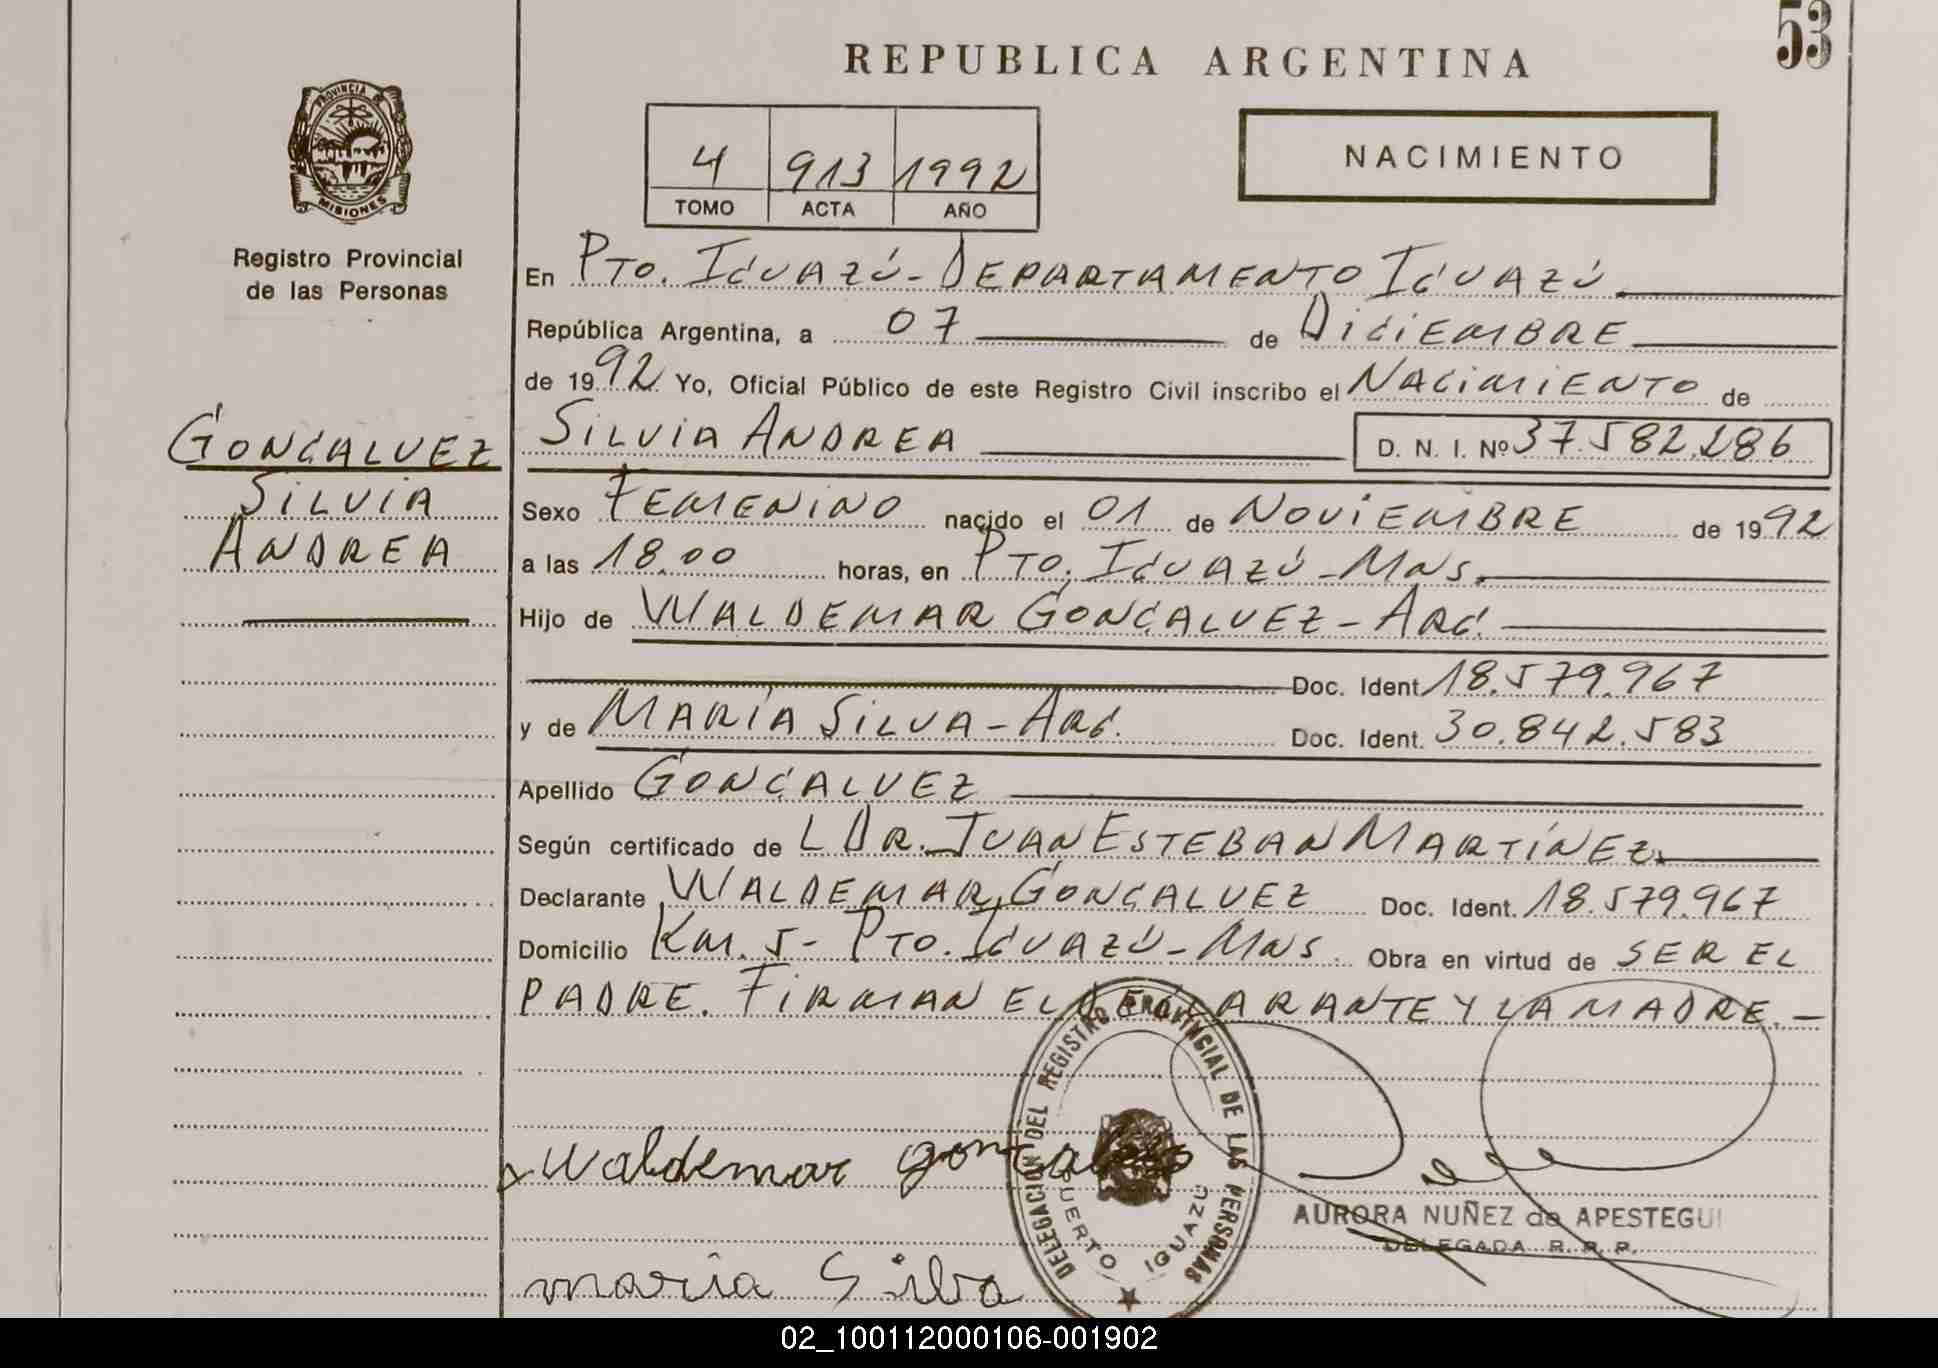 53
REPUBLICA ARGENTINA
PROVINCIA DE
MISIONES
Registro Provincial
de las Personas
4 913 1992
TOMO ACTA AÑO
NACIMIENTO
En PTO. IGUAZÚ - DEPARTAMENTO IGUAZÚ
República Argentina, a 07 de DICIEMBRE
de 1992 Yo, Oficial Público de este Registro Civil inscribo el NACIMIENTO de
GONCALVEZ
SILVIA
ANDREA
SILVIA ANDREA D. N. I. Nº 37.582.286
Sexo FEMENINO nacido el 01 de NOVIEMBRE de 1992
a las 18.00 horas, en PTO. IGUAZÚ - MNS.
Hijo de WALDEMAR GONCALVEZ - ARG.
Doc. Ident 18.579.967
y de MARÍA SILVA - ARG. Doc. Ident. 30.842.583
Apellido GONCALVEZ
Según certificado de L DR. JUAN ESTEBAN MARTÍNEZ.
Declarante WALDEMAR GONCALVEZ Doc. Ident. 18.579.967
Domicilio KM. 5 - PTO. IGUAZÚ - MNS. Obra en virtud de SER EL
PADRE. FIRMAN EL DECLARANTE Y LA MADRE. -
DELEGACION DEL REGISTRO PROVINCIAL DE LAS PERSONAS
PUERTO IGUAZU
Waldemar
AURORA NUÑEZ de APESTEGUI
DELEGADA R. P. P.
maria Silva
02_100112000106-001902